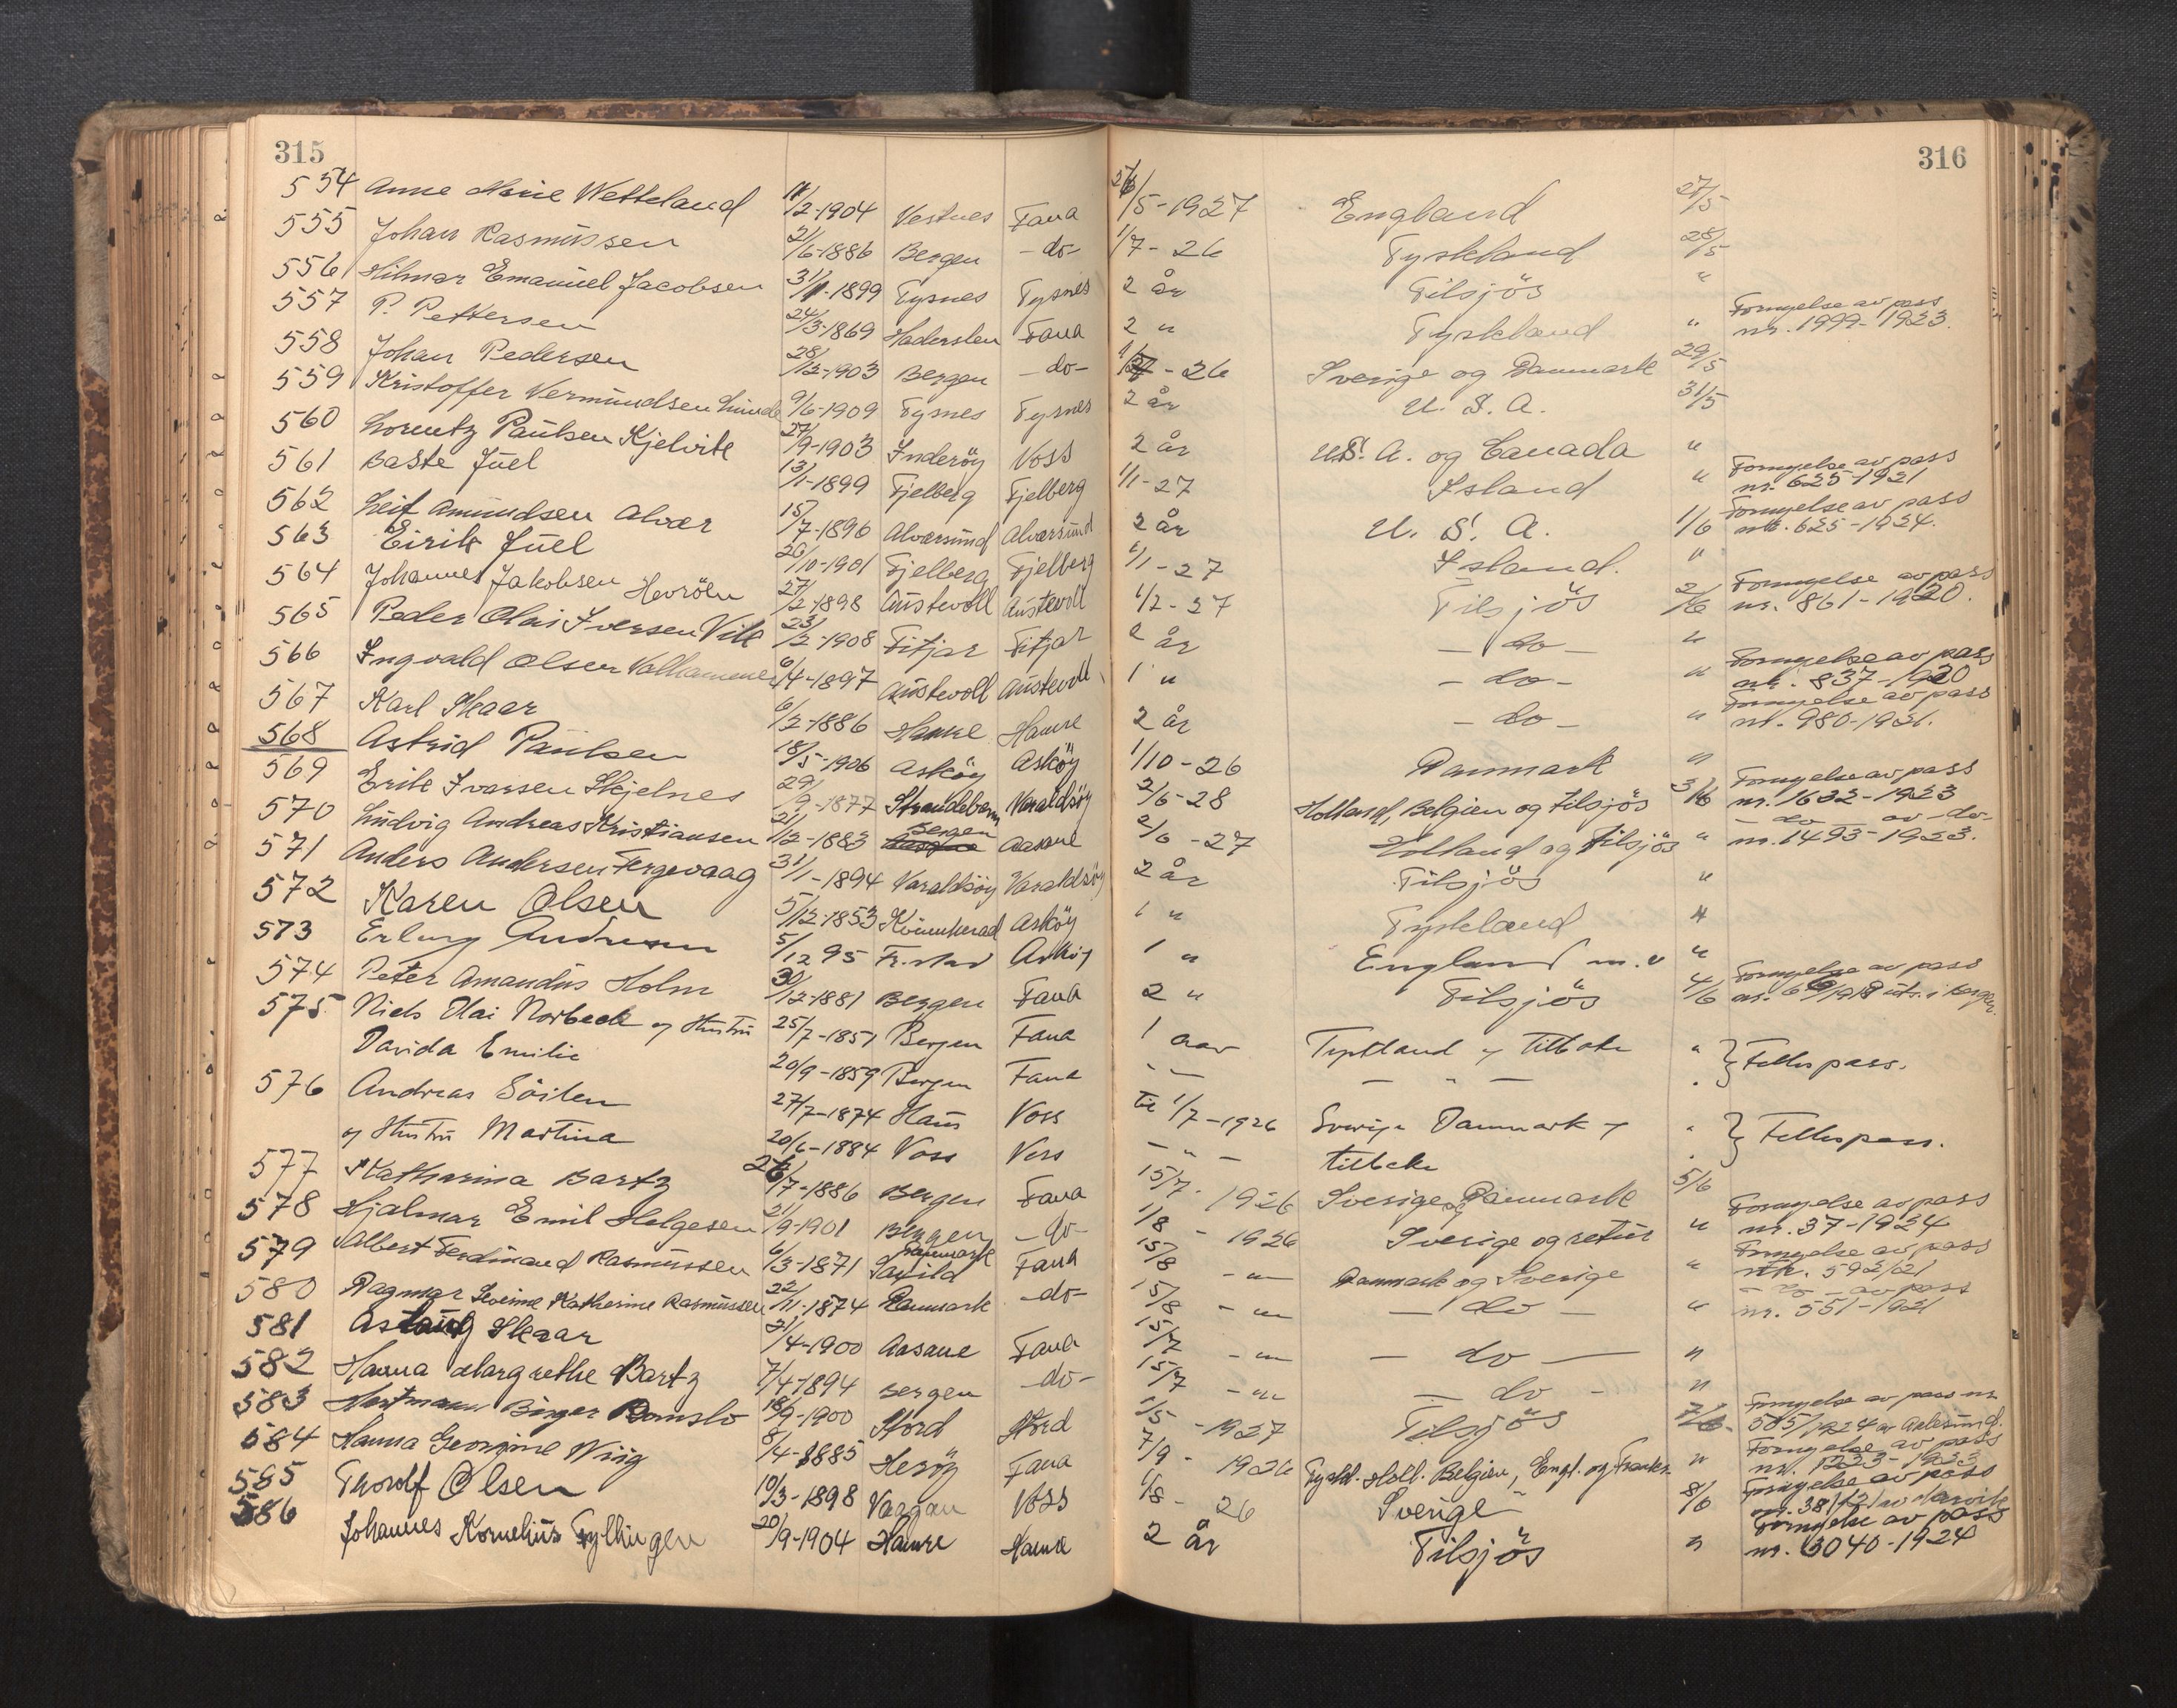 315
316
554 Anne Marie Wetteland 11/2-1904 Vestnes Fana 26/5-1927 England 27/5
555 Johan Rasmussen 21/6-1886 Bergen -do- 1/7-26 Tyskland 28/5
556 Hilmar Emanuel Jacobsen 31/1-1899 Tysnes Tysnes 2 år Tilsjös "
557 P. Pettersen 24/3-1869 Haderslen Fana 2 " Tyskland " Fornyelse av pass nr. 1999-1923.
558 Johan Pedersen 28/12-1903 Bergen -do- - 26 Sverige og Danmark 29/5
559 Kristoffer Vermundsen Lunde 9/6-1909 Tysnes Tysnes 2 år U. S. A. 31/5
560 Lorentz Paulsen Kjelvik 27/9-1903 Inderöy Voss 2 år U.S. A. og Canada "
561 Baste Juel 13/1-1899 Fjelberg Fjelberg 1/1-27 Island " Fornyelse av pass nr. 625-1921
562 Leif Amundsen Alvær 15/7-1896 Alversund Alversund 2 år U. S. A. 1/6 Fornyelse av pass nr. 625-1924.
563 Eirik Juel 26/10-1901 Fjelberg Fjelberg 1/1-27 Island. "
564 Johannes Jakobsen Hevröen 27/2-1898 Austevoll Austevoll 1/2-27 Tilsjös 2/6 Fornyelse av pass nr. 861-1920.
565 Peder Olai Iversen Vik 23/2-1908 Fitjar Fitjar 2 år -do- "
566 Ingvald Olsen 6/4-1897 Austevoll Austevoll 1 " -do- " Fornyelse av pass nr. 837-1920
567 Karl Skaar 6/2-1886 Hamre Hamre 2 år -do- " Fornyelse av pass nr. 980-1921.
568 Astrid Paulsen 18/5-1906 Asköy Asköy 1/10-26 Danmark "
569 Erik Ivarsen Skjelnes 29/9-1877 Strandebarm Varaldsöy 2/6-28 Holland, Belgien og tilsjös 3/6 Fornyelse av pass nr. 1632-1923
570 Ludvig Andreas Kristiansen 21/12-1883 Bergen Aasane 2/6-27 Holland og tilsjös " -do- av -do- nr. 1493-1923.
571 Anders Andersen Tergevaag 31/1-1894 Varaldsöy Varaldsöy 2 år Tilsjös "
572 Karen Olsen 5/12-1853 Kvinnherad Asköy 1 " Tyskland "
573 Erling Andresen 5/12 95 Fr.stad Asköy 1 " England m.v "
574 Peter Amandus Holm 30/12-1881 Bergen Fana 2 " Tilsjös 4/6 Fornyelse av pass
575 Niels Olai Norbeck og Hustru 25/7-1857 Bergen Fana 1 aar Tyskland og tilbake " } Fellespass.
Davida Emilie 20/9-1859 Bergen Fana - " -
576 Andreas Söilen 27/7-1874 Haus Voss til 1/7-1926 Sverige Danmark og " } Fellespass.
og Hustru Martina 20/6-1884 Voss Voss - " - tilbake
577 Katharina Bartz 26/7-1886 Bergen Fana 15/7-1926 Sverige og Danmark 5/6
578 Hjalmar Emil Helgesen 21/9-1901 Bergen -do- 1/8-1926 Sverige og retur " Fornyelse av pass nr. 37-1924
579 Albert Ferdinand Rasmussen 6/3-1871 Saxild Danmark Fana 15/8 - " Danmark og Sverige " Fornyelse av pass nr. 592/21
580 Dagmar Severine Katherine Rasmussen 22/11-1874 Danmark -do- 15/8 - " -do- " -do- av pass nr. 551-1921
581 Aslaug Skaar 21/4-1900 Aasane Fana 15/7 - " -do- "
582 Hanna Margrethe Bartz 7/4-1894 Bergen -do- 15/7 - " -do- "
583 Hartmann Birger Bømslo 18/9-1900 Stord Stord 1/5-1927 Tilsjös 7/6. Fornyelse av pass nr. 585/1924 av Aalesund.
584 Hanna Georgine Wiig 8/4-1885 Heröy Fana 7/9-1926 Tyskl. Holl. Belgien, Engl. og Frankr. " Fornyelse av pass nr. 1223-1923
585 Thorolf Olsen 10/3-1898 Voss 1/8-26 Sverige 8/6 Fornyelse av pass nr. 381/21 av Narvik
586 Johannes Kornelius Fyllingen 20/9-1904 Hamre Hamre 2 år Tilsjös " Fornyelse av pass nr. 3040-1924